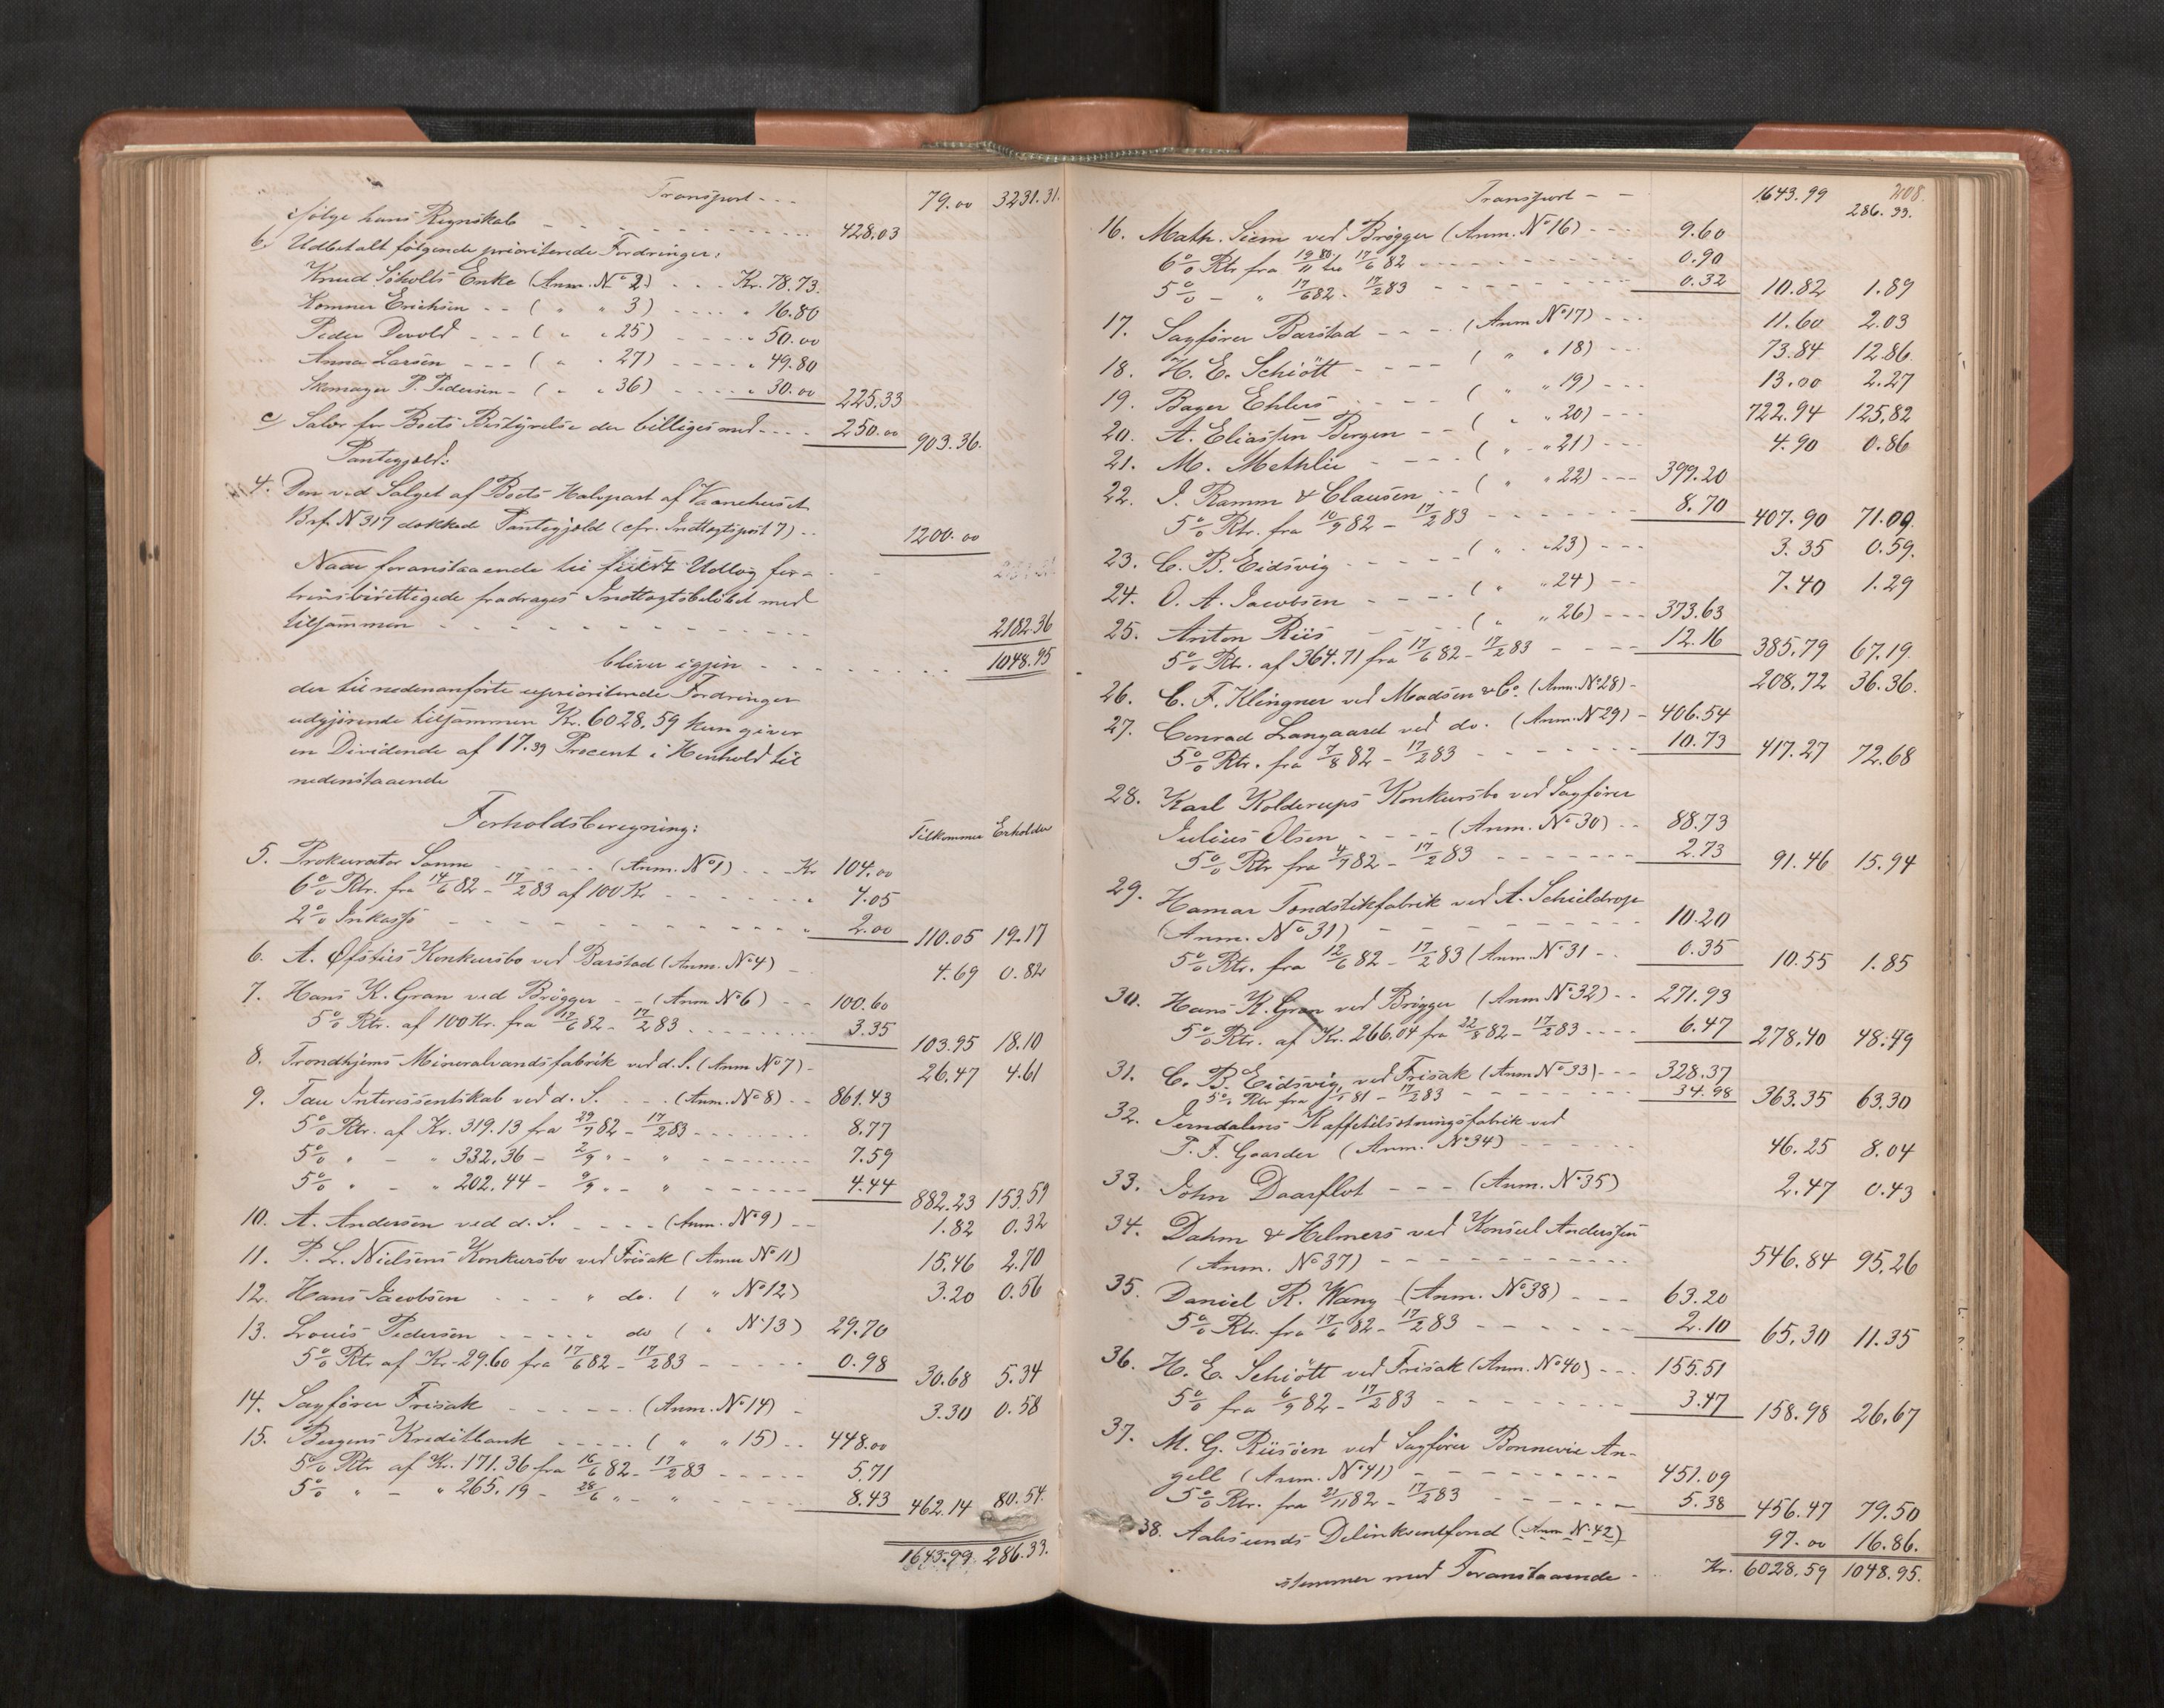 Transport - - - 79.00 3231.31.
ifølge hans Regnskab - - - 428.03
b. Udbetalt følgende prioriterede Fordringer:
Knud Soholts Enke (Anm. No 2) - - - Kr. 78.73.
Komner Erichsen - - ( " " 3) - - - " 16.80
Peder Devold - - - ( " " 25) - - - " 50.00
Anna Larsen - - - ( " " 27) - - - " 49.80
Skomager P. Pedersen - ( " " 36) - - - " 30.00 225.33
c/ Salær for Boets Bestyrelse der billiges med - - - 250.00 903.36.
Pantegjæld:
4. Den ved Salget af Boets Halvpart af Vaanehuset
Brf. N 317 dækkede Pantegjæld (cfr. Indtægtspost 7) - - 1200.00
Naar foranstaaende til fuldt Udlæg for-
trinsberettigede fradrages Indtægtsbeløbet med
tilsammen - - - 2182.36
bliver igjen - - - 1048.95
der til nedenanførte uprioriterede Fordringer
udgjørende tilsammen Kr. 6028.59 kun giver
en Dividende af 17.39 Procent i Henhold til
nedenstaaende
Forholdsberegning: Tilkommer Erholder
5. Prokurator Sanne - - - (Anm. No 1) - - Kr 104.00
6% Rtr. fra 14/6 82 - 17/2 83 af 100 Kr - - - " 4.05
2% Inkasso - - - " 2.00 110.05 19.17
6. A. Øfstiés Konkursbo ved Barstad (Anm. No 4) - 4.69 0.82
7. Hans K. Gran ved Brøgger - - (Anm No 6) - - 100.60
5% Rtr. af 100 Kr. fra 17/6 82 - 17/2 83 - - - 3.35 103.95 18.10
8. Trondhjems Mineralvandsfabrik ved d. S. (Anm No 7) - 26.47 4.61
9. Tau Interessentskab ved d. S. - - - (Anm. No 8) - - 861.43
5% Rtr. af Kr. 319.13 fra 29/7 82 - 17/2 83 - - - 8.77
5% " - " 332.36 - 2/9 " - " - - - 7.59
5% " - " 202.44 - 9/9 " - " - - - 4.44 882.23 153.59
10. A. Andersen ved d. S. - - - (Anm. No 9) - - 1.82 0.32
11. P. L. Nielsens Konkursbo ved Frisak (Anm No 11) 15.46 2.70
12. Hans Jacobsen - - - " do. ( " No 12) 3.20 0.56
13. Louis Pedersen - - - " do ( " No 13) 29.70
5% Rtr af Kr. 29.60 fra 17/6 82 - 17/2 83 - - - 0.98 30.68 5.34
14. Sagfører Frisak - - - (Anm. No 14) - 3.30 0.58
15. Bergens Kreditbank - - - ( " " 15) - - 448.00
5% Rtr af Kr. 171.36 fra 16/6 82 - 17/2 83 - - - 5.71
5% " - " 265.19 - 28/6 " - " - - - 8.43 462.14 80.54.
1643.99 286.33.
208.
Transport - - 1643.99 286.33.
16. Math. Siem ved Brøgger (Anm. No 16) - - - 9.60
6% Rtr fra 19/11 80 til 17/6 82 - - - 0.90
5% - " 17/6 82 - 17/2 83 - - - 0.32 10.82 1.89
17. Sagfører Barstad - - - (Anm No 17) - - - 11.60 2.03
18. H. E. Schiött - - - ( " " 18) - - - 73.84 12.86
19. Bager Ehlers - - - ( " " 19) - - - 13.00 2.27
20. A. Eliassen Bergen - - ( " " 20) - - - 722.94 125.82
21. M. Methlie - - - ( " " 21) - - - 4.90 0.86
22. J. Ramm & Clausen - - ( " " 22) - - - 399.20
5% Rtr. fra 10/9 82 - 17/2 83 - - - 8.70 407.90 71.09.
23. C. B. Eidsvig - - - ( " " 23) - - - 3.35 0.59.
24. O. A. Jacobsen - - - ( " " 24) - - 7.40 1.29
25. Anton Riis - - - ( " " 26) - - - 373.63
5% Rtr. af 364.71 fra 17/6 82 - 17/2 83 - - - 12.16 385.79 67.19.
26. C. F. Klingner ved Madsen & Co. (Anm. No 28) - 208.72 36.36.
27. Conrad Langaard ved do. (Anm. N 29) - 406.54
5% Rtr. fra 7/8 82 - 17/2 83 - - - 10.73 417.27 72.68
28. Karl Kolderups Konkursbo ved Sagfører
Julius Olsen - - - (Anm. No 30) - - 88.73
5% Rtr fra 4/7 82 - 17/2 83 - - - 2.73 91.46 15.94
29. Hamar Tændstikfabrik ved A. Schieldrop
(Anm. No 31) - - - 10.20
5% Rtr. fra 12/6 82 - 17/2 83 (Anm. No 31 - - 0.35 10.55 1.85
30. Hans K. Gran ved Brøgger (Anm No 32) - - 271.93
5% Rtr. af Kr. 266.04 fra 22/8 82 - 17/2 83 - - - 6.47 278.40 48.49
31. C. B. Eidsvig, ved Frisak (Anm No 33) - - - 328.37
5% Rtr fra 81 - 17/2 83 - - - 34.98 363.35 63.30
32. Jerndalens Kaffetilsætningsfabrik ved
P. F. Gaarder (Anm. No 34) - - - 46.25 8.04
33. John Daarflot - - - (Anm. No 35) 2.47 0.43
34. Dahm & Helmers ved Konsul Anderssen
(Anm. No 37) - - - 546.84 95.26
35. Daniel R. Wang (Anm. No 38) - - - 63.20
5% Rtr. fra 17/6 82 - 17/2 83 - - - 2.10 65.30 11.35
36. H. E. Schiött ved Frisak (Anm. No 40) - - - 155.51
5% fra 6/9 82 - 17/2 83 - - - 3.47 158.98 26.67
37. M. G. Riisøen ved Sagfører Bonnevie An-
gell (Anm. No 41) - - - 451.09
5% Rtr. fra 21/11 82 - 17/2 83 - - - 5.38 456.47 79.50
38. Aalesunds Delinkventfond (Anm No 42) 97.00 16.86.
stemmer med Foranstaaende - Kr. 6028.59 1048.95.